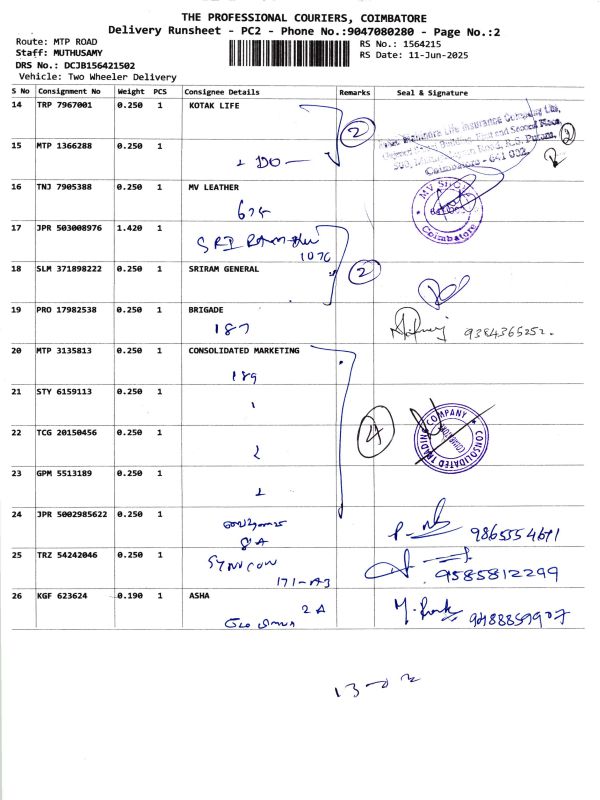 THE PROFESSIONAL COURIERS, COIMBATORE
Delivery Runsheet - PC2 - Phone No.:9047080280 - Page No.:2
Route: MTP ROAD
Staff: MUTHUSAMY
DRS No.: DCJB156421502
Vehicle: Two Wheeler Delivery
RS No.: 1564215
RS Date: 11-Jun-2025
S No Consignment No Weight PCS Consignee Details Remarks Seal & Signature
14 TRP 7967001 0.250 1 KOTAK LIFE
2
15 MTP 1366288 0.250 1
DO
Coimbatore - 641 002.
2
16 TNJ 7905388 0.250 1 MV LEATHER
Coimbatore
17 JPR 503008976 1.420 1
1076
18 SLM 371898222 0.250 1 SRIRAM GENERAL
2
19 PRO 17982538 0.250 1 BRIGADE
187
9384365252.
20 MTP 3135813 0.250 1 CONSOLIDATED MARKETING
189
21 STY 6159113 0.250 1
22 TCG 20150456 0.250 1
4
CONSOLIDATED TRADING COMPANY
23 GPM 5513189 0.250 1
24 JPR 5002985622 0.250 1
8A
9865554671
25 TRZ 54242046 0.250 1
SYNICON
171-A3
9585812299
26 KGF 623624 0.190 1 ASHA
2A
9488859907